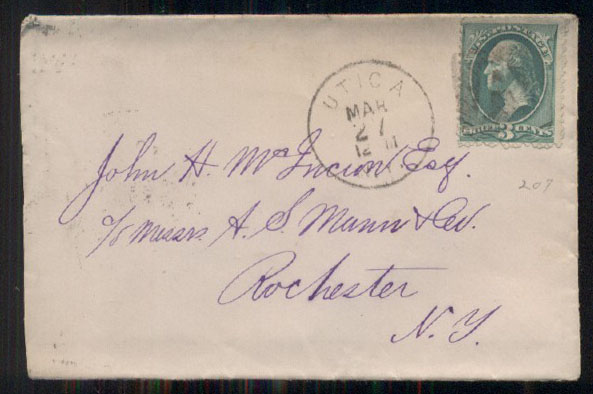 U.S. POSTAGE
UNITED 3 CENTS
UTICA
MAR
27
12 M
John H. Esq.
c/o Messrs. A. S. Mann & Co.
Rochester
N. Y.
207